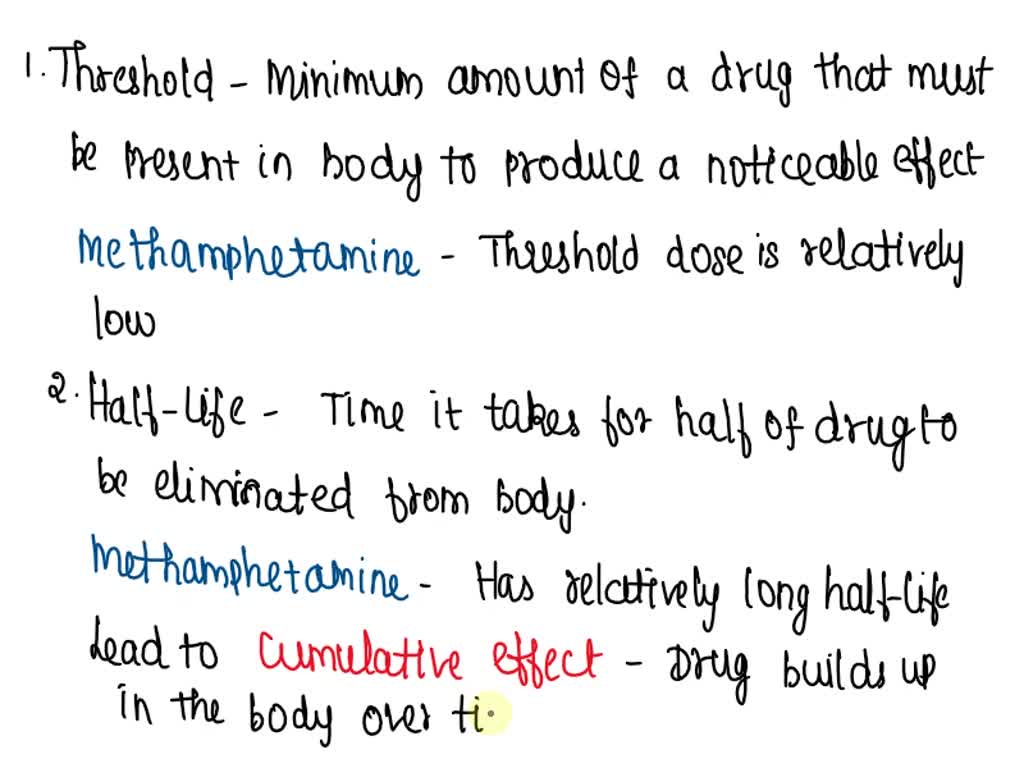 1. Threshold - Minimum amount of a drug that must
be present in body to produce a noticeable effect
Methamphetamine - Threshold dose is relatively
low
2. Half-life - Time it takes for half of drug to
be eliminated from body.
Methamphetamine - Has relatively long half-life
Lead to Cumulative effect - Drug builds up
in the body over ti